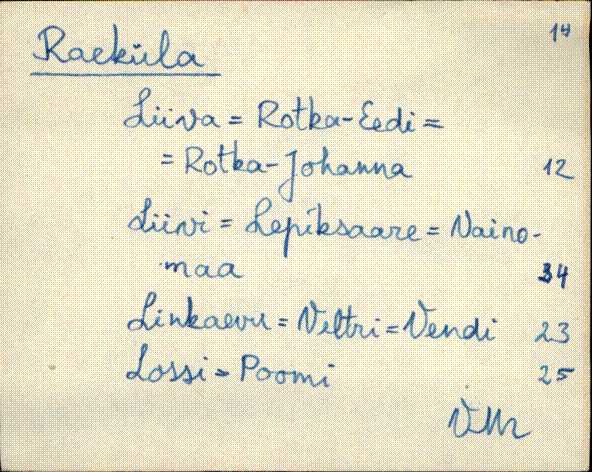 14
Raeküla
Liiva = Rotka-Eedi =
= Rotka-Johanna 12
Liivi = Lepiksaare = Naino-
maa 34
Linkaevu = Veltri = Vendi 23
Lossi = Poomi 25